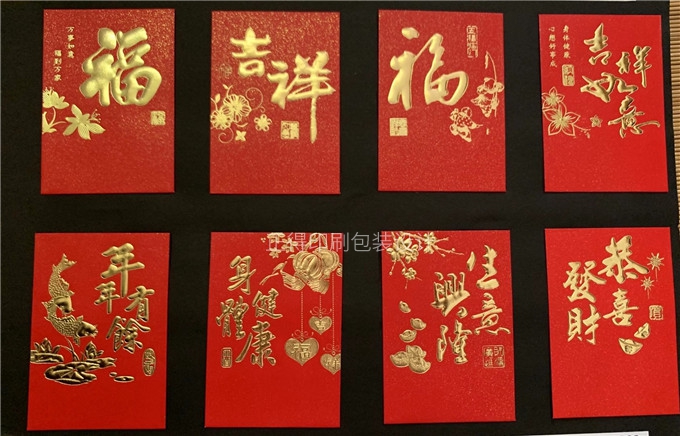 万事如意
福到万家
福
吉祥
福
身体健康
心想好事成
吉祥
如意
年年有餘
身體健康
福
生意興隆
恭喜
發財
正得印刷包装